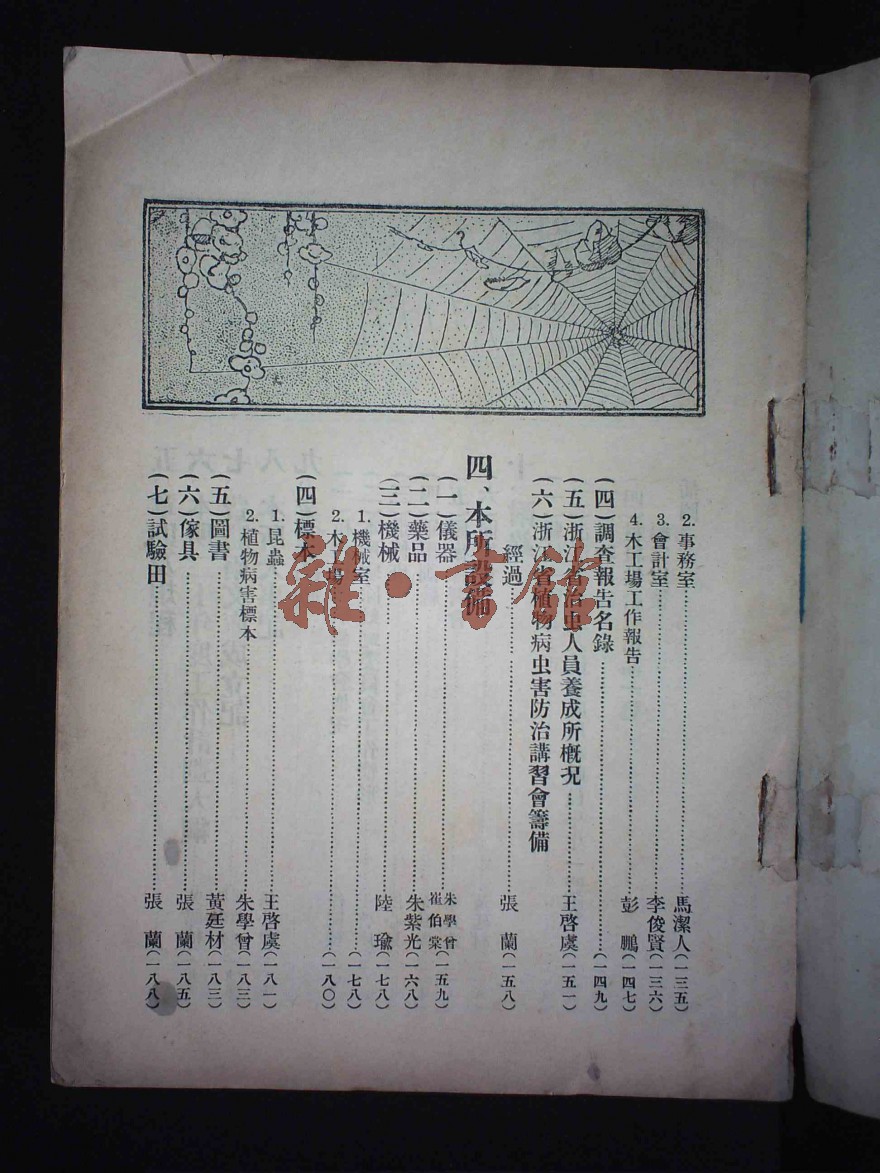 2. 事務室……馬潔人(一三五)
3. 會計室……李俊賢(一三六)
4. 木工場工作報告……彭鵬(一四七)
(四)調查報告名錄……(一四九)
(五)浙江省治虫人員養成所概況……王啓虞(一五一)
(六)浙江省植物病虫害防治講習會籌備
經過……張蘭(一五八)
四、本所設備
(一)儀器……朱學曾 崔伯棠(一五九)
(二)藥品……朱紫光(一六八)
(三)機械……陸瑜(一七八)
1. 機械室……(一七八)
2. 木工場……(一八〇)
(四)標本
1. 昆蟲……王啓虞(一八一)
2. 植物病害標本……朱學曾(一八三)
(五)圖書……黃廷材(一八三)
(六)傢具……張蘭(一八五)
(七)試驗田……張蘭(一八八)
雜·書館